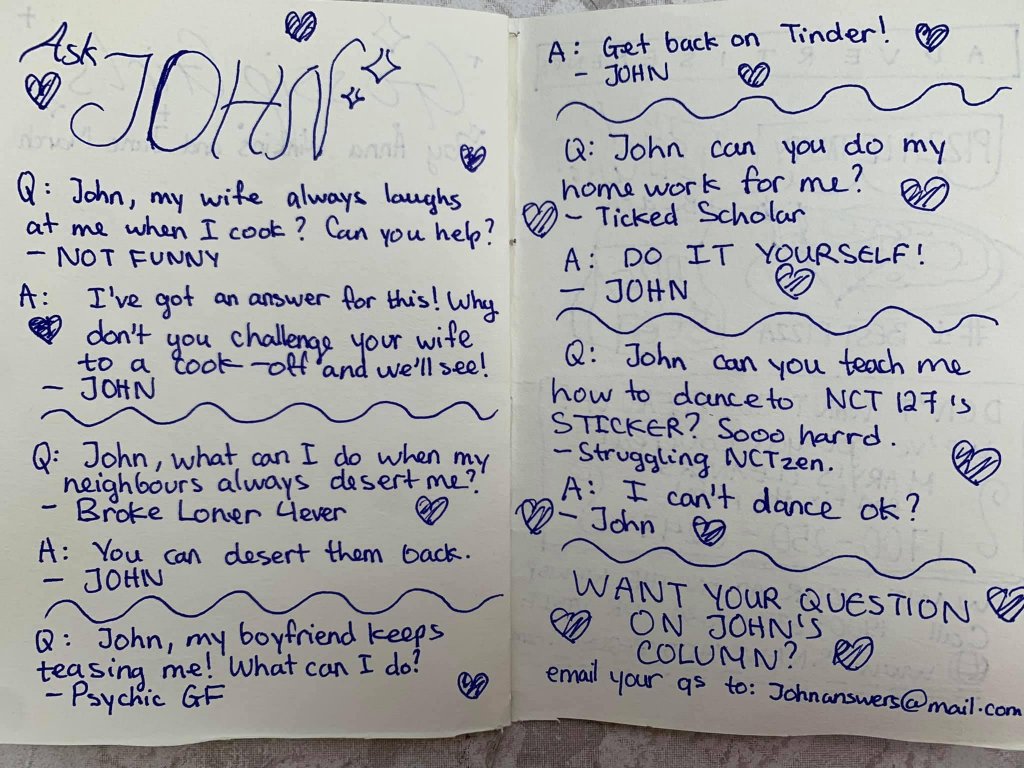 Ask
JOHN
Q: John, my wife always laughs
at me when I cook? Can you help?
- NOT FUNNY
A: I've got an answer for this! Why
don't you challenge your wife
to a cook-off and we'll see!
- JOHN
Q: John, what can I do when my
neighbours always desert me?
- Broke Loner 4ever
A: You can desert them back.
- JOHN
Q: John, my boyfriend keeps
teasing me! What can I do?
- Psychic GF
A: Get back on Tinder!
- JOHN
Q: John can you do my
home work for me?
- Ticked Scholar
A: DO IT YOURSELF!
- JOHN
Q: John can you teach me
how to dance to NCT 127's
STICKER? Sooo harrd.
- Struggling NCTzen.
A: I can't dance ok?
- John
WANT YOUR QUESTION
ON JOHN'S
COLUMN?
email your qs to: Johnanswers@mail.com